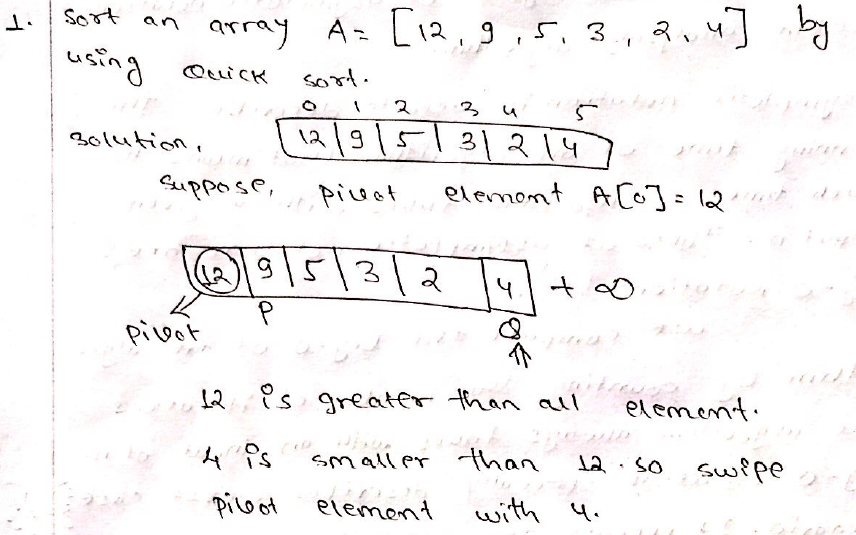 1. Sort an array A = [12, 9, 5, 3, 2, 4] by
using Quick sort.
0 1 2 3 4 5
Solution, 12 | 9 | 5 | 3 | 2 | 4
Suppose, pivot element A[0] = 12
12 | 9 | 5 | 3 | 2 | 4 + ∞
pivot P Q
12 is greater than all element.
4 is smaller than 12. so swipe
pivot element with 4.